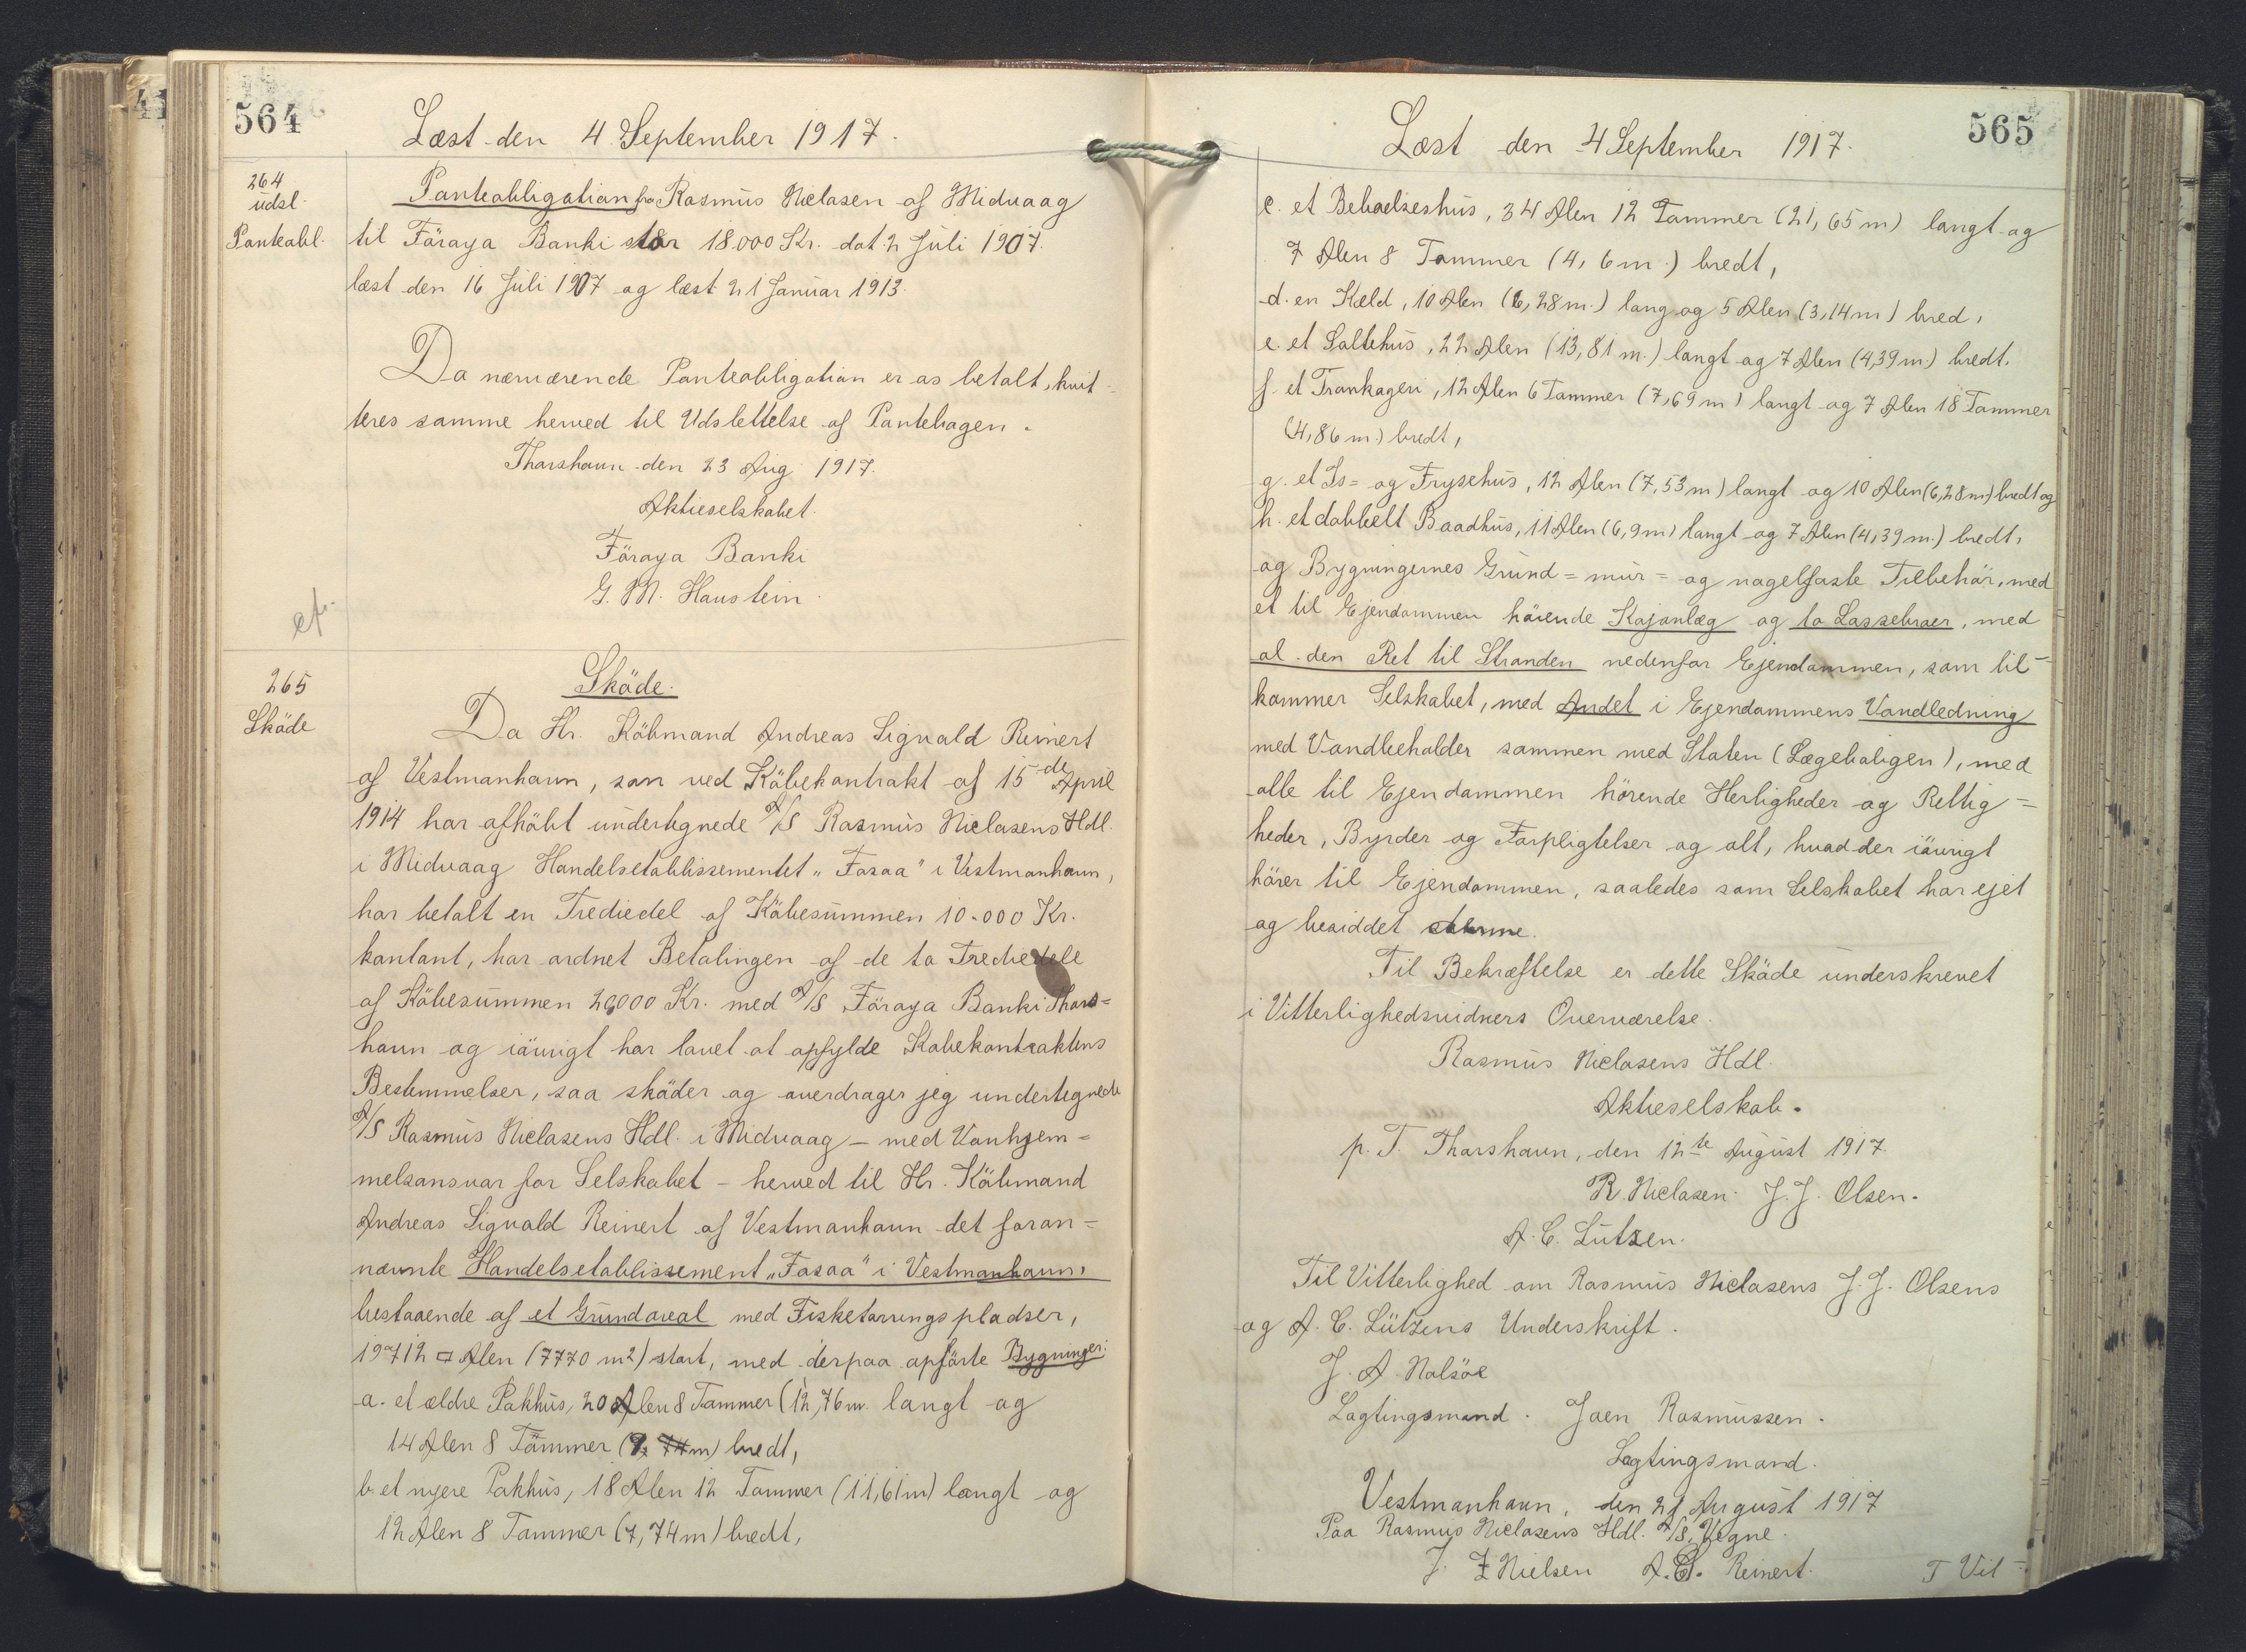 564
Læst den 4 September 1917.
264
udsl.
Panteobl.
Panteobligation fra Rasmus Niclasen af Midvaag
til Föroya Banki stor 18.000 Kr. dat. 2 Juli 1907.
læst den 16 Juli 1907 og læst 21 Januar 1913.
Da nærværende Panteobligation er os betalt, kvit-
teres samme herved til Udslettelse af Pantebogen.
Thorshavn den 23 Aug 1917.
Aktieselskabet.
Föroya Banki
G. M. Haustein.
265
Sköde
Sköde.
Da Hr. Köbmand Andreas Sigvald Reinert
af Vestmanhavn, som ved Köbekontrakt af 15de April
1914 har afköbt undertegnede A/S Rasmus Niclasens Hdl.
i Midvaag Handelsetablissementet "Fosaa" i Vestmanhavn,
har betalt en Trediedel af Köbesummen 10.000 Kr.
kontant, har ordnet Betalingen af de to Trediedele
af Köbesummen 20,000 Kr. med A/S Föroya Banki Thors=
havn og iövrigt har lovet at opfylde Kobekontraktens
Bestemmelser, saa sköder og overdrager jeg undertegnede
A/S Rasmus Niclasens Hdl. i Midvaag – med Vanhjem=
melsansvar for Selskabet – herved til Hr. Köbmand
Andreas Sigvald Reinert af Vestmanhavn det foran=
nævnte Handelsetablissement "Fosaa" i Vestmanhavn,
bestaaende af et Grundareal med Fisketörringspladser,
19712 □ Alen (7770 m2) stort, med derpaa opförte Bygninger:
a. et ældre Pakhus, 20 Alen 8 Tommer (12,76 m. langt og
14 Alen 8 Tömmer (9, 74m) bredt,
b. et nyere Pakhus, 18 Alen 12 Tommer (11,61m) langt og
12 Alen 8 Tommer (7,74m) bredt,
565
Læst den 4 September 1917.
c. et Beboelseshus, 34 Alen 12 Tommer (21,65m) langt og
7 Alen 8 Tommer (4,6m.) bredt,
d. en Kæld, 10 Alen (6,28m.) lang og 5 Alen (3,14m) bred,
e. et Saltehus, 22 Alen (13,81 m.) langt og 7 Alen (4,39 m.) bredt.
f. et Trankogeri, 12 Alen 6 Tommer (7,69 m) langt og 7 Alen 18 Tommer
(4,86 m.) bredt,
g. et Is= og Frysehus, 12 Alen (7,53m) langt og 10 Alen (6,28m) bredt og
h. et dobbelt Baadhus, 11 Alen (6,9m) langt og 7 Alen (4,39 m.) bredt,
og Bygningernes Grund= mur= og nagelfaste Tilbehör, med
et til Ejendommen hörende Kajanlæg og to Lossebroer, med
al den Ret til Stranden nedenfor Ejendommen, som til-
kommer Selskabet, med Andel i Ejendommens Vandledning
med Vandbeholder sammen med Staten (Lægeboligen), med
alle til Ejendommen hörende Herligheder og Rettig=
heder, Byrder og Forpligtelser og alt, hvad der iövrigt
hörer til Ejendommen, saaledes som Selskabet har ejet
og besiddet samme.
Til Bekræftelse er dette Sköde underskrevet
i Vitterlighedsvidners Overværelse.
Rasmus Niclasens Hdl.
Aktieselskab.
p. T. Thorshavn, den 12te August 1917.
R. Niclasen. J. J. Olsen.
A. C. Lützen.
Til Vitterlighed om Rasmus Niclasens J. J. Olsens
og A. C. Lützens Underskrift.
J. A. Nolsöe
Lagtingsmand. Joen Rasmussen.
Lagtingsmand.
Vestmanhavn, den 21 August 1917
Paa Rasmus Niclasens Hdl. A/S, Vegne.
J. Z Nielsen A. S. Reinert. T Vit=